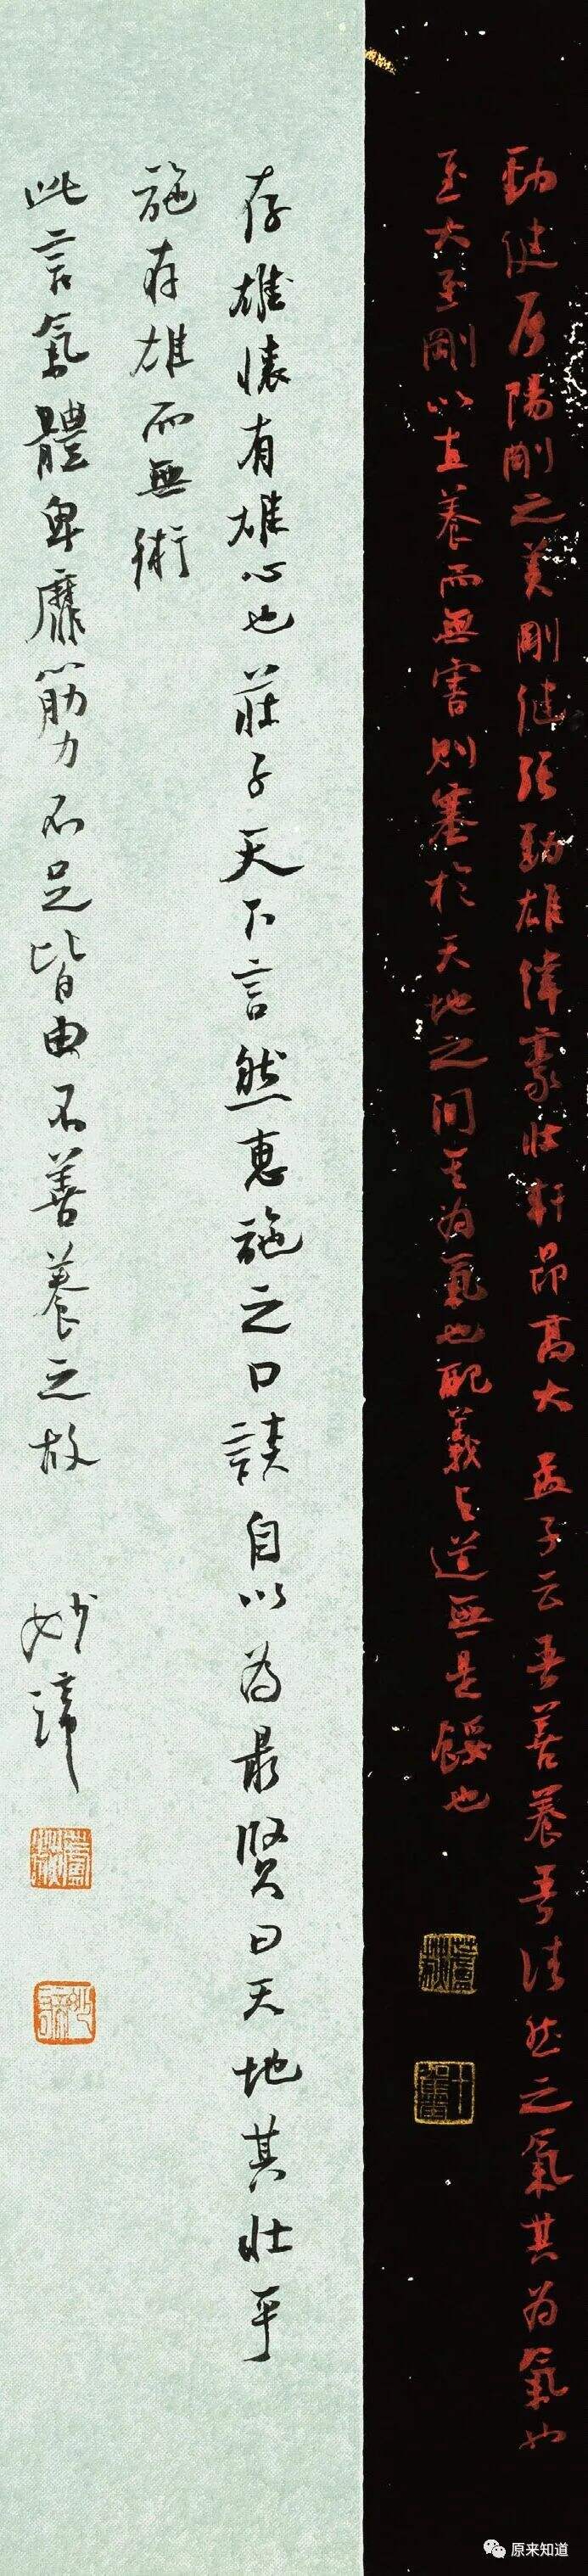 勁健屬陽剛之美剛健強勁雄偉豪壯軒昂高大孟子云吾善養吾浩然之氣其為氣也
至大至剛以直養而無害則塞於天地之間其為氣也配義與道無是餒也
存雄懷有雄心也莊子天下言然惠施之口談自以為最賢曰天地其壯乎
施存雄而無術
此言氣體卑靡筋力不足皆由不善養之故
妙諦
原来知道